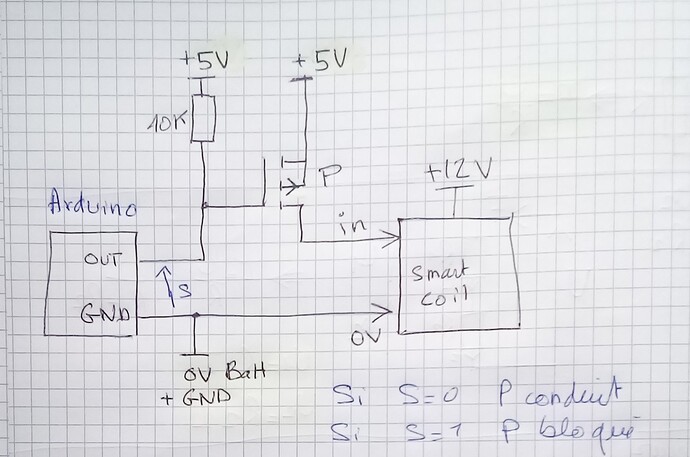 +5V +5V
10K
P
+12V
Arduino
in
OUT
smart
coil
S
GND
0V
0V Batt
+ GND
Si S=0 P conduit
Si S=1 P bloqué